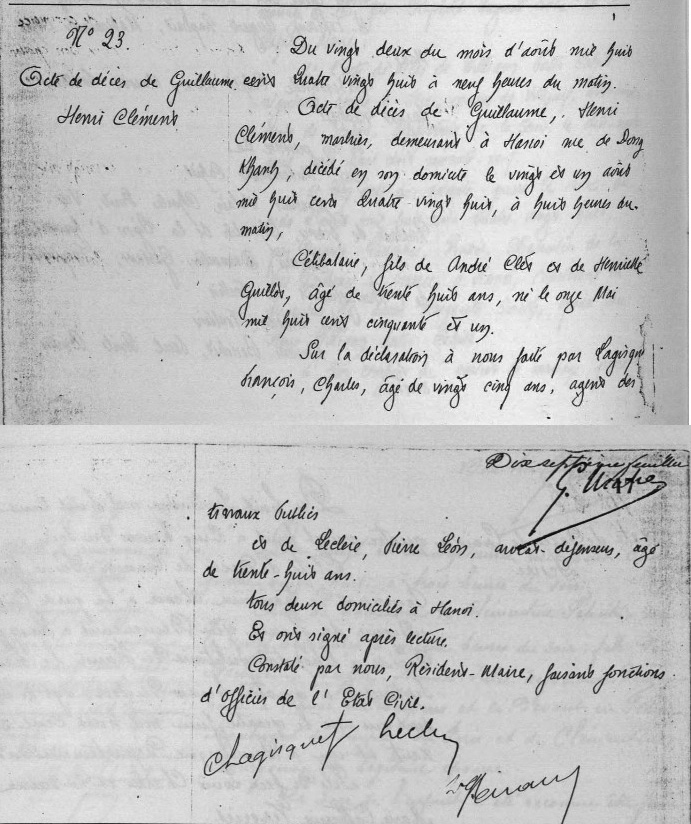 N° 23.
Acte de décès de Guillaume
Henri Clément
Du vingt deux du mois d'août mil huit
cent Quatre vingt huit à neuf heures du matin.
Acte de décès de Guillaume, Henri
Clément, marbrier, demeurant à Hanoi rue de Dong
Khanh, décédé en son domicile le vingt et un août
mil huit cent Quatre vingt huit, à huit heures du
matin,
Célibataire, fils de André Clés et de Henriette
Guillot, âgé de trente huit ans, né le onze Mai
mil huit cent cinquante et un.
Sur la déclaration à nous faite par Lagisquet
François, Charles, âgé de vingt cinq ans, agent des
Dix septième feuillet
travaux Publics
et de Leclerc, Pierre Léon, avocat-défenseur, âgé
de trente-huit ans.
tous deux domiciliés à Hanoi.
Et ont signé après lecture.
Constaté par nous, Résident-Maire, faisant fonctions
d'Officier de l'Etat Civil.
CLagisquet Leclerc